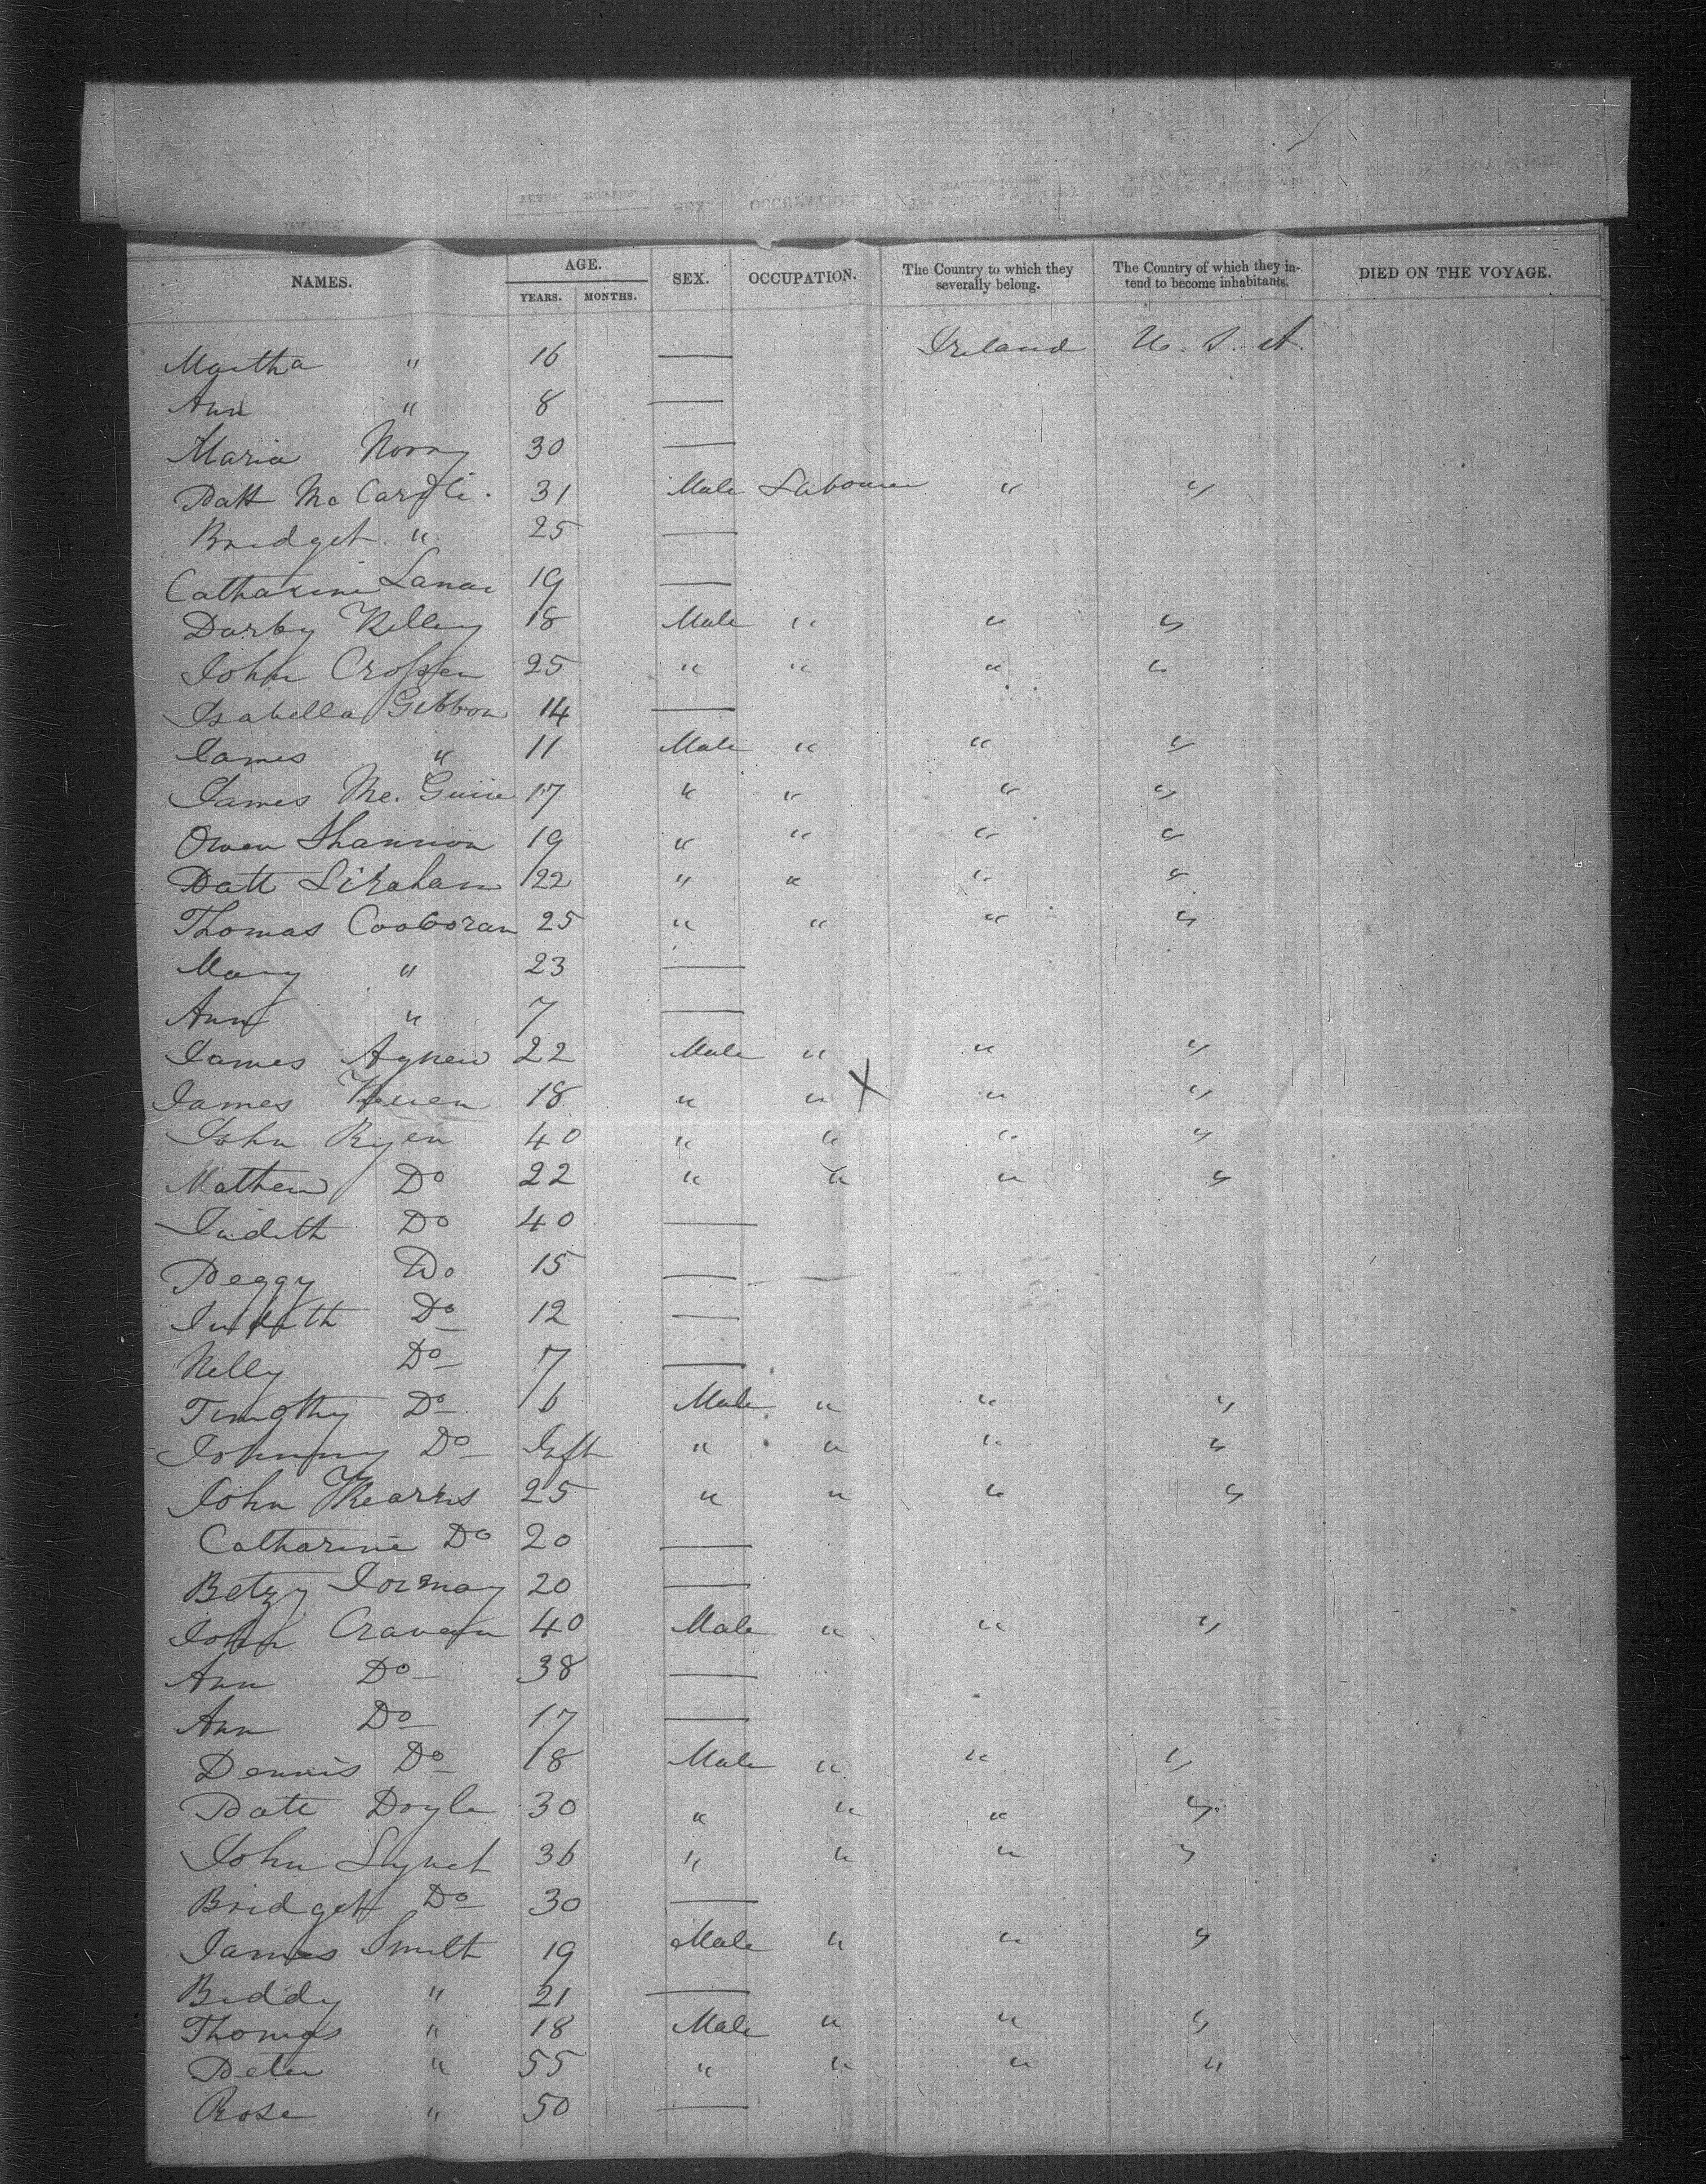 NAMES. AGE. SEX. OCCUPATION. The Country to which they severally belong. The Country of which they in- tend to become inhabitants. DIED ON THE VOYAGE.
YEARS. MONTHS.
Martha " 16 — Ireland U. S. A
Ann " 8 —
Maria Norry 30 —
Patt Mc Cardle 31 Male Labourer " "
Bridget " 25 —
Catharine 19 —
Darby Kelley 18 Male " " "
John Crossen 25 " " " "
Isabella Gibbon 14 —
James " 11 Male " " "
James Mc. Guire 17 " " " "
Owen Shannon 19 " " " "
Patt 22 " " " "
Thomas Cooboran 25 " " " "
Mary " 23 —
Ann " 7 —
James Agnew 22 Male " " "
James 18 " " X " "
John Ryen 40 " " " "
Mathew Do 22 " " " "
Judith Do 40 —
Peggy Do 15 —
Judith Do 12 —
Nelly Do 7 —
Timothy Do 6 Male " " "
Johnny Do Inft " " " "
John Kearns 25 " " " "
Catharine Do 20 —
Betzy 20 —
John Craven 40 Male " " "
Ann Do 38 —
Ann Do 17 —
Dennis Do 18 Male " " "
Patt Doyle 30 " " " "
John 36 " " " "
Bridgett Do 30 —
James Smith 19 Male " " "
Biddy " 21 —
Thomas " 18 Male " " "
Peter " 55 " " " "
Rose " 50 —